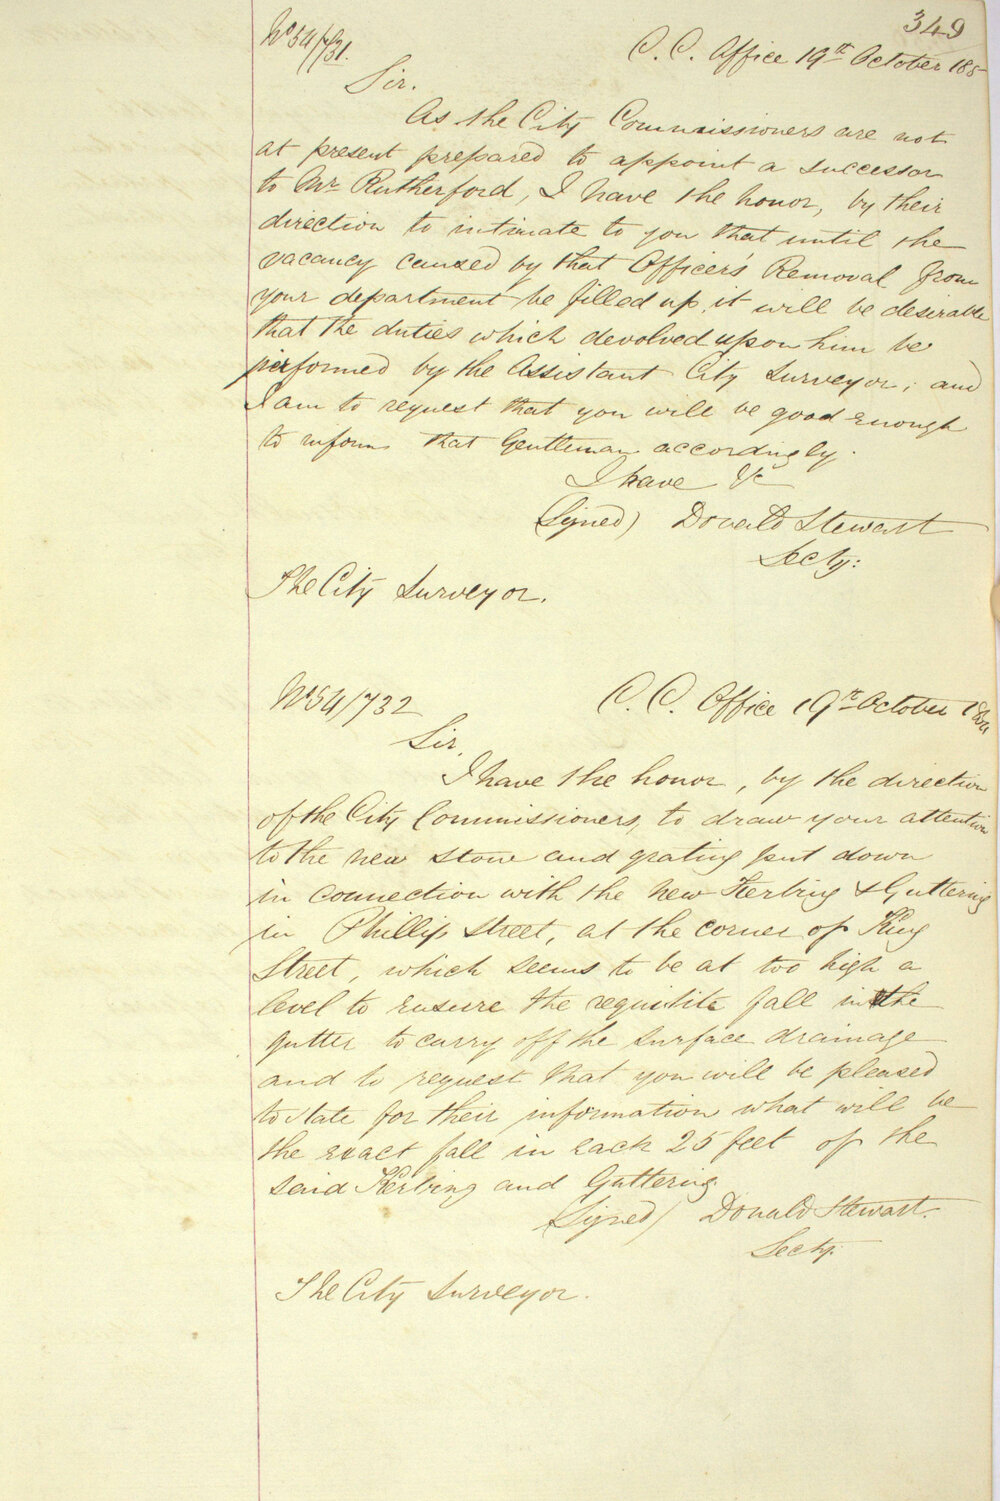 349
No 54/731. C. C. Office 19th October 185
Sir.
As the City Commissioners are not
at present prepared to appoint a successor
to Mr Rutherford, I have the honor, by their
direction to intimate to you that until the
vacancy caused by that Officer's Removal from
your department be filled up, it will be desirable
that the duties which devolved upon him be
performed by the Assistant City Surveyor; and
I am to request that you will be good enough
to inform that Gentleman accordingly.
I have &c
(Signed) Donald Stewart
Secty:
The City Surveyor.
No 54/732 C. C. Office 19th October 1854
Sir,
I have the honor, by the direction
of the City Commissioners, to draw your attention
to the new stone and grating put down
in connection with the new Kerbing & Guttering
in Phillip Street, at the corner of King
Street, which seems to be at too high a
level to ensure the requisite fall in the
gutter to carry off the surface drainage
and to request that you will be pleased
to state for their information what will be
the exact fall in each 25 feet of the
said Kerbing and Guttering
(Signed) Donald Stewart.
Secty.
The City Surveyor.